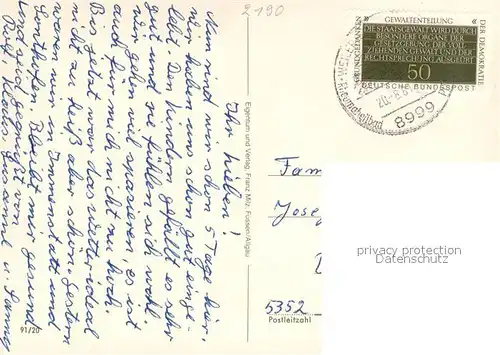 2190
Ihr Lieben!
Nun sind wir schon 5 Tage hier,
wir haben uns schon gut einge-
lebt. Den Kindern gefällt es sehr
gut und sie fühlen sich wohl.
wir gehen viel spazieren, es ist
auch für mich nicht zu hoch.
Bis jetzt war das Wetter ideal
nicht zu heiß aber schön. Gestern
waren wir in Immenstadt und
Sonthofen. Bleibt mir gesund
und seid gegrüßt von
Susanne u.
91/20
Eigentum und Verlag: Franz Milz, Füssen/Allgäu
GEWALTENTEILUNG
DIE STAATSGEWALT WIRD DURCH
BESONDERE ORGANE DER
GESETZGEBUNG, DER VOLL-
ZIEHENDEN GEWALT UND DER
RECHTSPRECHUNG AUSGEÜBT
50
DEUTSCHE BUNDESPOST
GRUNDGEDANKEN
DER DEMOKRATIE
8999
Fam
Jose
5352
Postleitzahl
privacy protection
Datenschutz